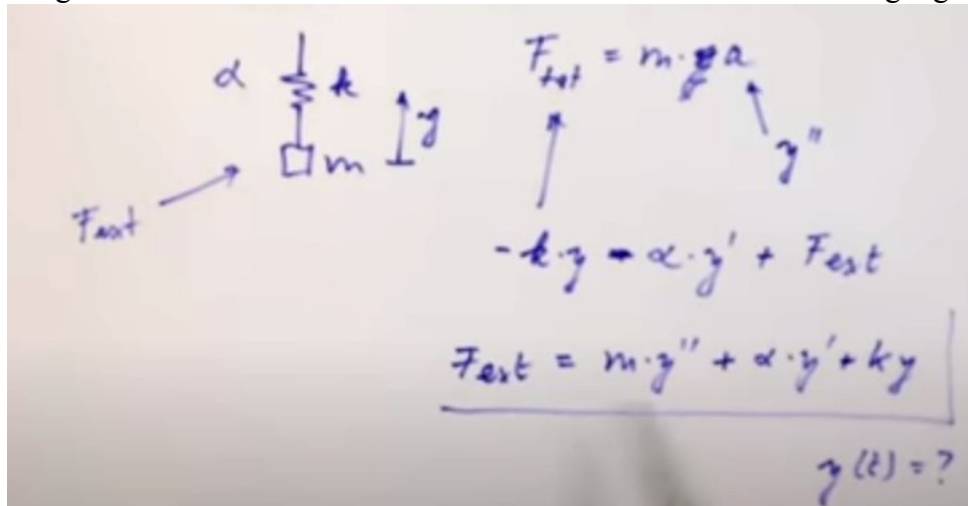 α k
y
m
F_ext
F_tot = m·a
y''
-k·y - α·y' + F_est
F_est = m·y'' + α·y' + ky
y(t) = ?